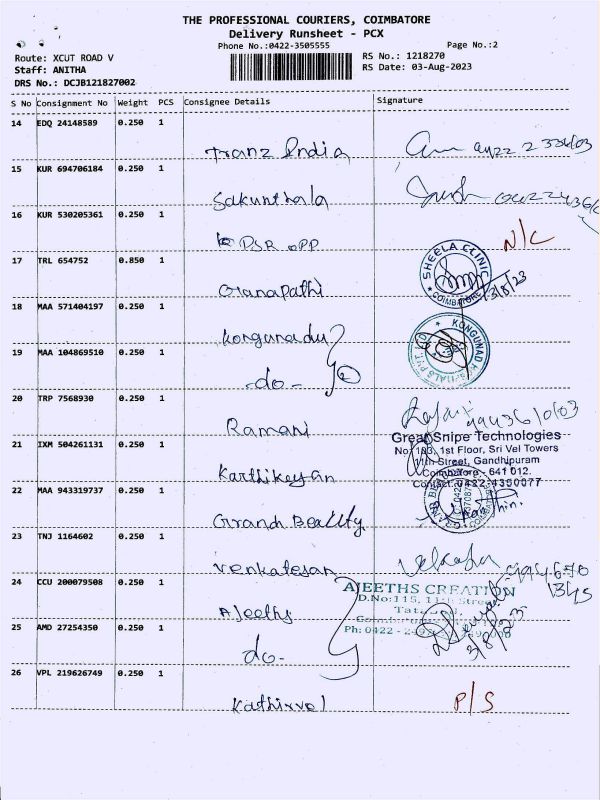 THE PROFESSIONAL COURIERS, COIMBATORE
Delivery Runsheet - PCX
Phone No.:0422-3505555
Page No.:2
Route: XCUT ROAD V
RS No.: 1218270
Staff: ANITHA
RS Date: 03-Aug-2023
DRS No.: DCJB121827002
S No Consignment No Weight PCS Consignee Details Signature
14 EDQ 24148589 0.250 1
Tranz India
15 KUR 694706184 0.250 1
Sakunthala
16 KUR 530205361 0.250 1
PSR OPP N/C
17 TRL 654752 0.850 1
SHEELA CLINIC
COIMBATORE
3/8/23
Ganapathi
18 MAA 571404197 0.250 1
Kongunadu
19 MAA 104869510 0.250 1
-do-
20 TRP 7568930 0.250 1
Ramani
21 IXM 504261131 0.250 1
Great Snipe Technologies
No: 103, 1st Floor, Sri Vel Towers
11th Street, Gandhipuram
Coimbatore - 641 012.
Contact: 0422-4350077
Karthikeyan
22 MAA 943319737 0.250 1
Grand Beauty
23 TNJ 1164602 0.250 1
Venkatesan
24 CCU 200079508 0.250 1
AJEETHS CREATION
D.No:115, 11th Street
Ajeeths
25 AMD 27254350 0.250 1
Ph: 0422 -
3/8/23
do-
26 VPL 219626749 0.250 1
Kathirvel P/S